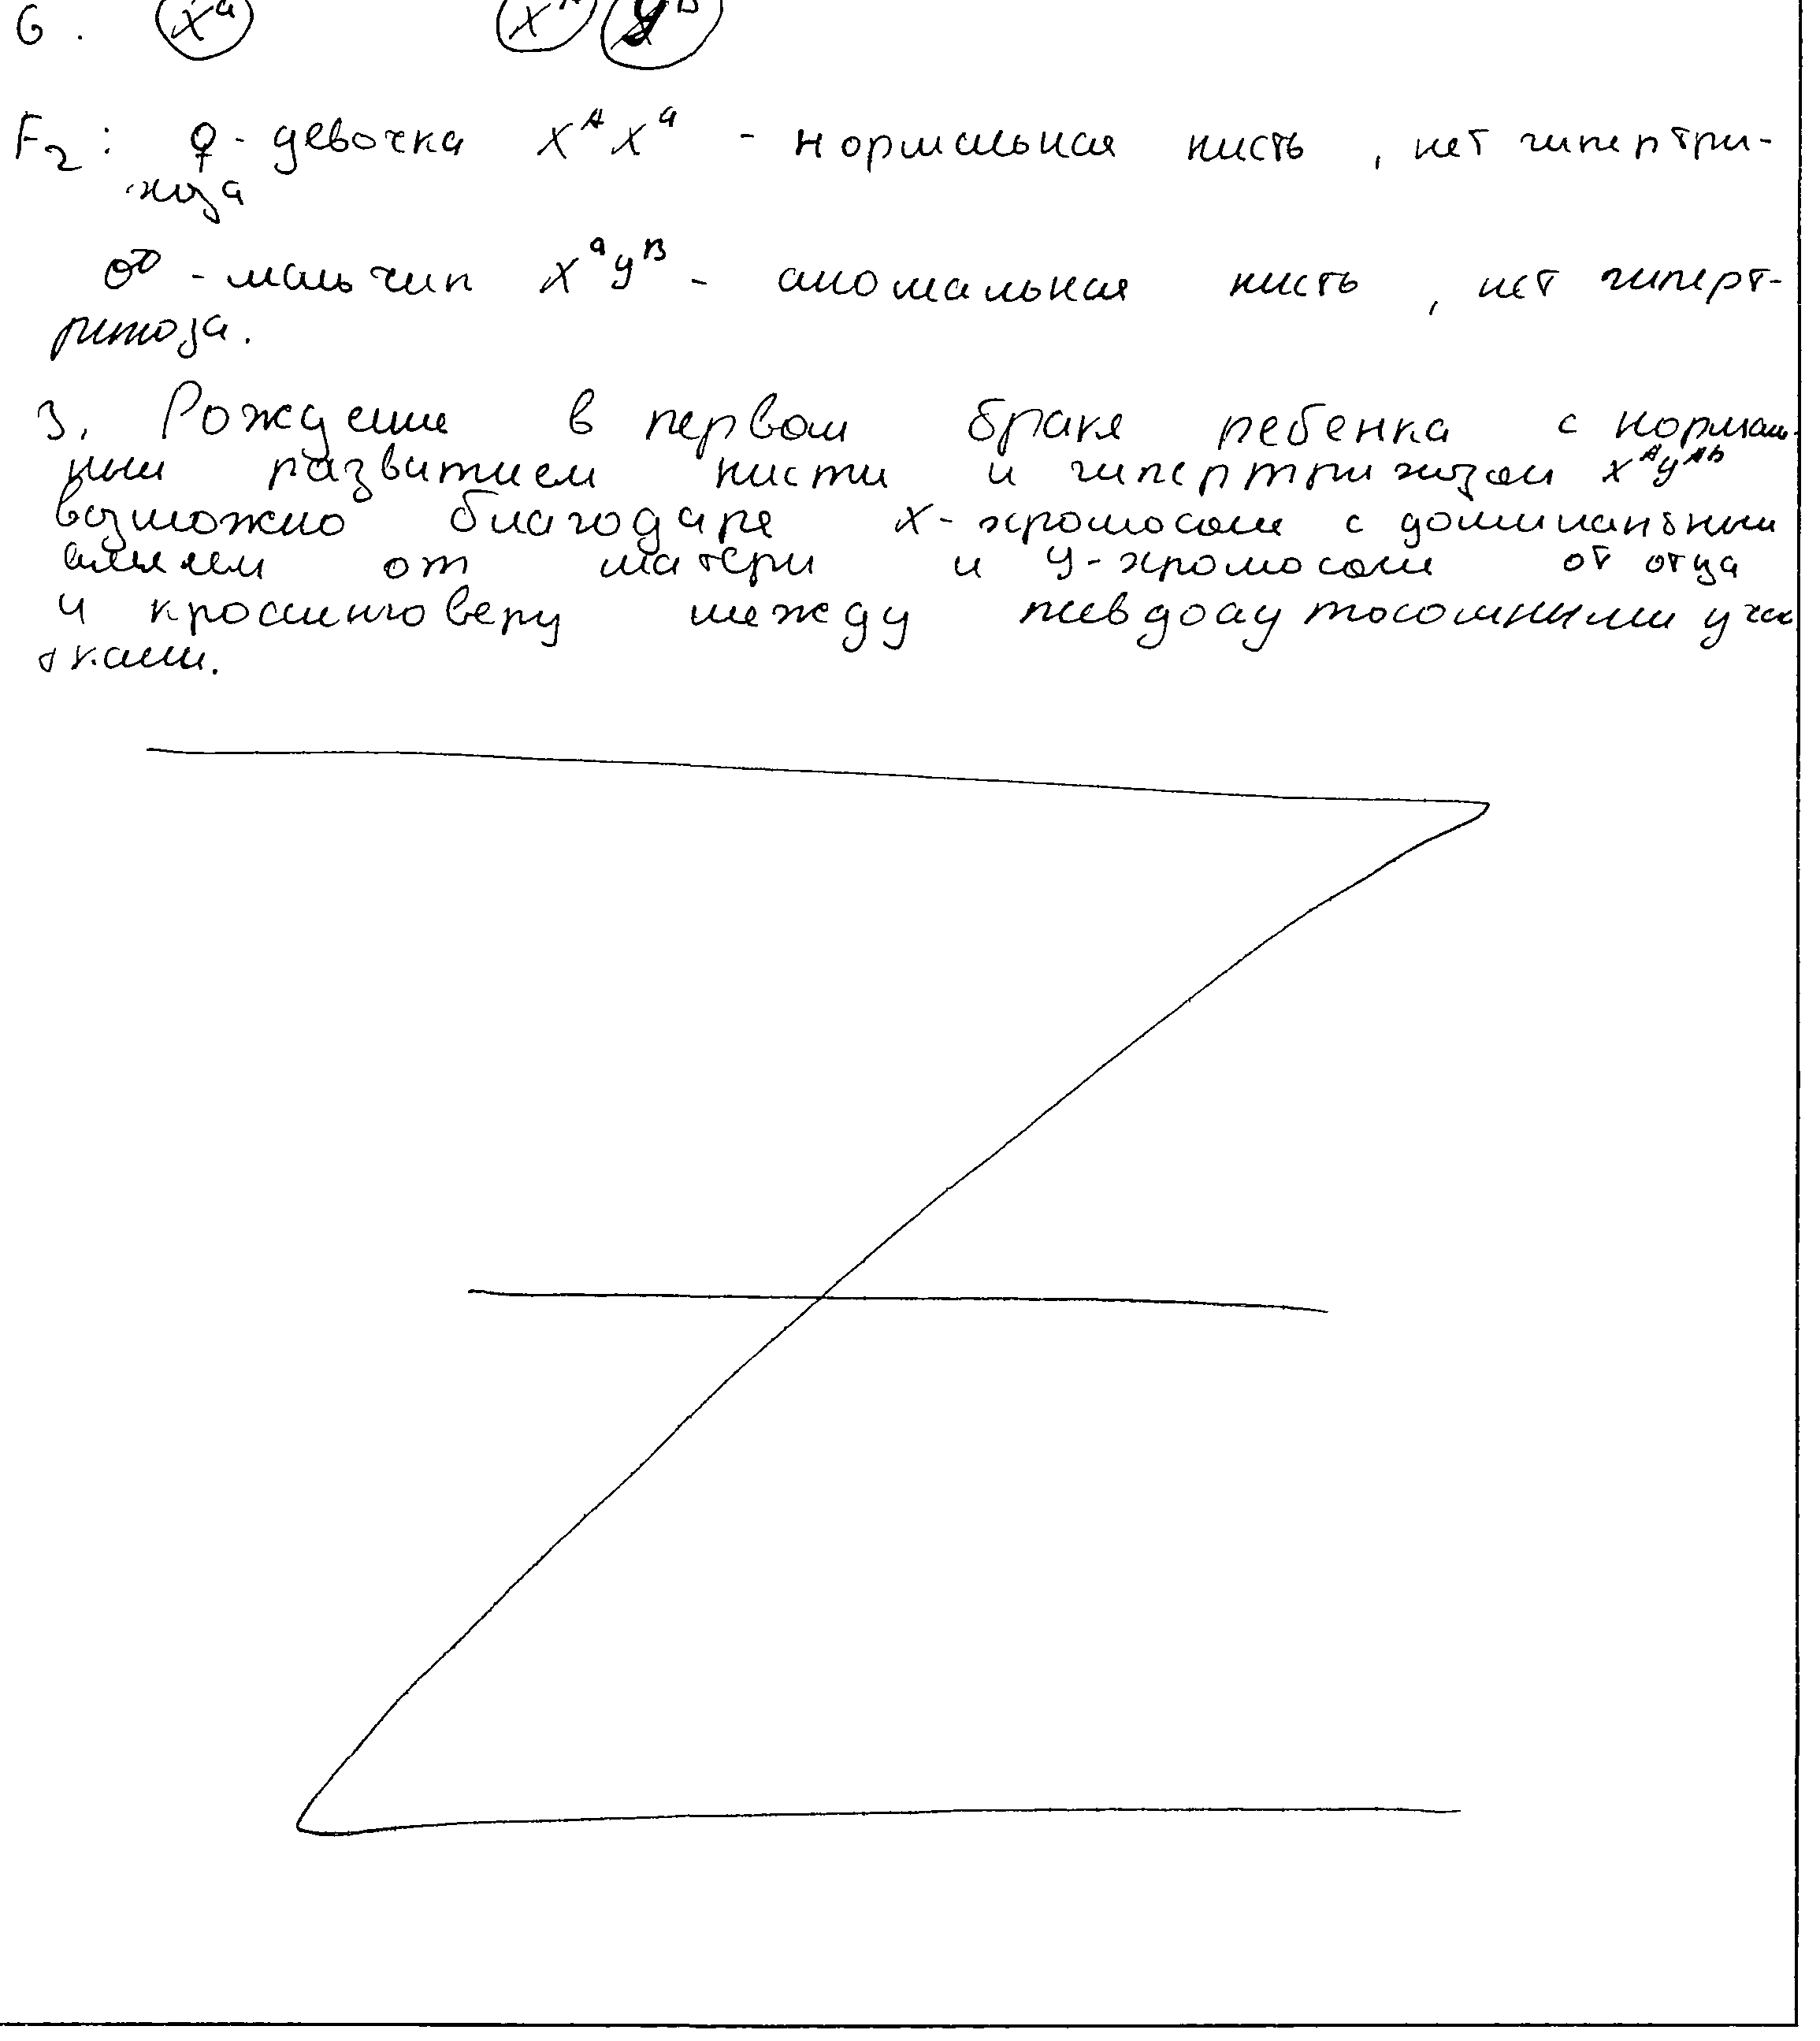 G. X^a X^A Y^B
F2: ♀ - девочка X^A X^a - нормальная кисть, нет гипертри-
хоза
♂ - мальчик X^a Y^B - аномальная кисть, нет гиперт-
рихоза.
3. Рождение в первом браке ребенка с нормаль-
ным развитием кисти и гипертрихозом X^A Y^Ab
возможно благодаря X-хромосоме с доминантным
аллелем от матери и Y-хромосоме от отца
и кроссинговеру между псевдоаутосомными учас
тками.